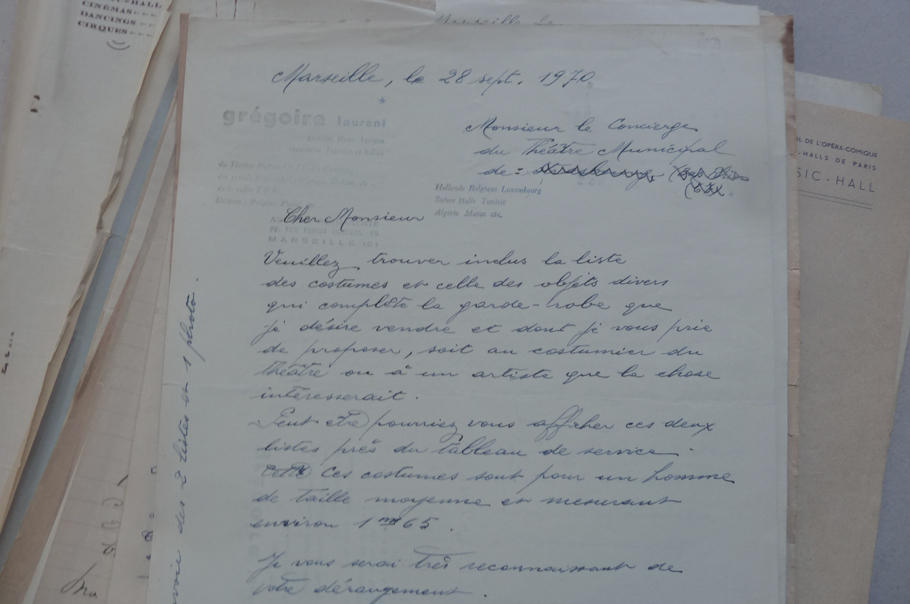 MUSIC-HALL
CINÉMAS
DANCINGS
CIRQUES
Marseille, le 28 sept. 1970
grégoire laurent
Monsieur le Concierge
du Théâtre Municipal
de :
Hollande Belgique Luxembourg
Suisse Italie Tunisie
Algérie Maroc etc.
Cher Monsieur
MARSEILLE
Veuillez trouver inclus la liste
des costumes et celle des objets divers
qui complète la garde-robe que
je désire vendre et dont je vous prie
de proposer, soit au costumier du
théâtre ou à un artiste que la chose
intéresserait.
Peut être pourriez vous afficher ces deux
listes près du Tableau de service.
Ces costumes sont pour un homme
de taille moyenne et mesurant
environ 1m65.
Je vous serai très reconnaissant de
votre dérangement.
des 2 listes et 1 photo.
DE L'OPÉRA-COMIQUE
-HALLS DE PARIS
SIC-HALL